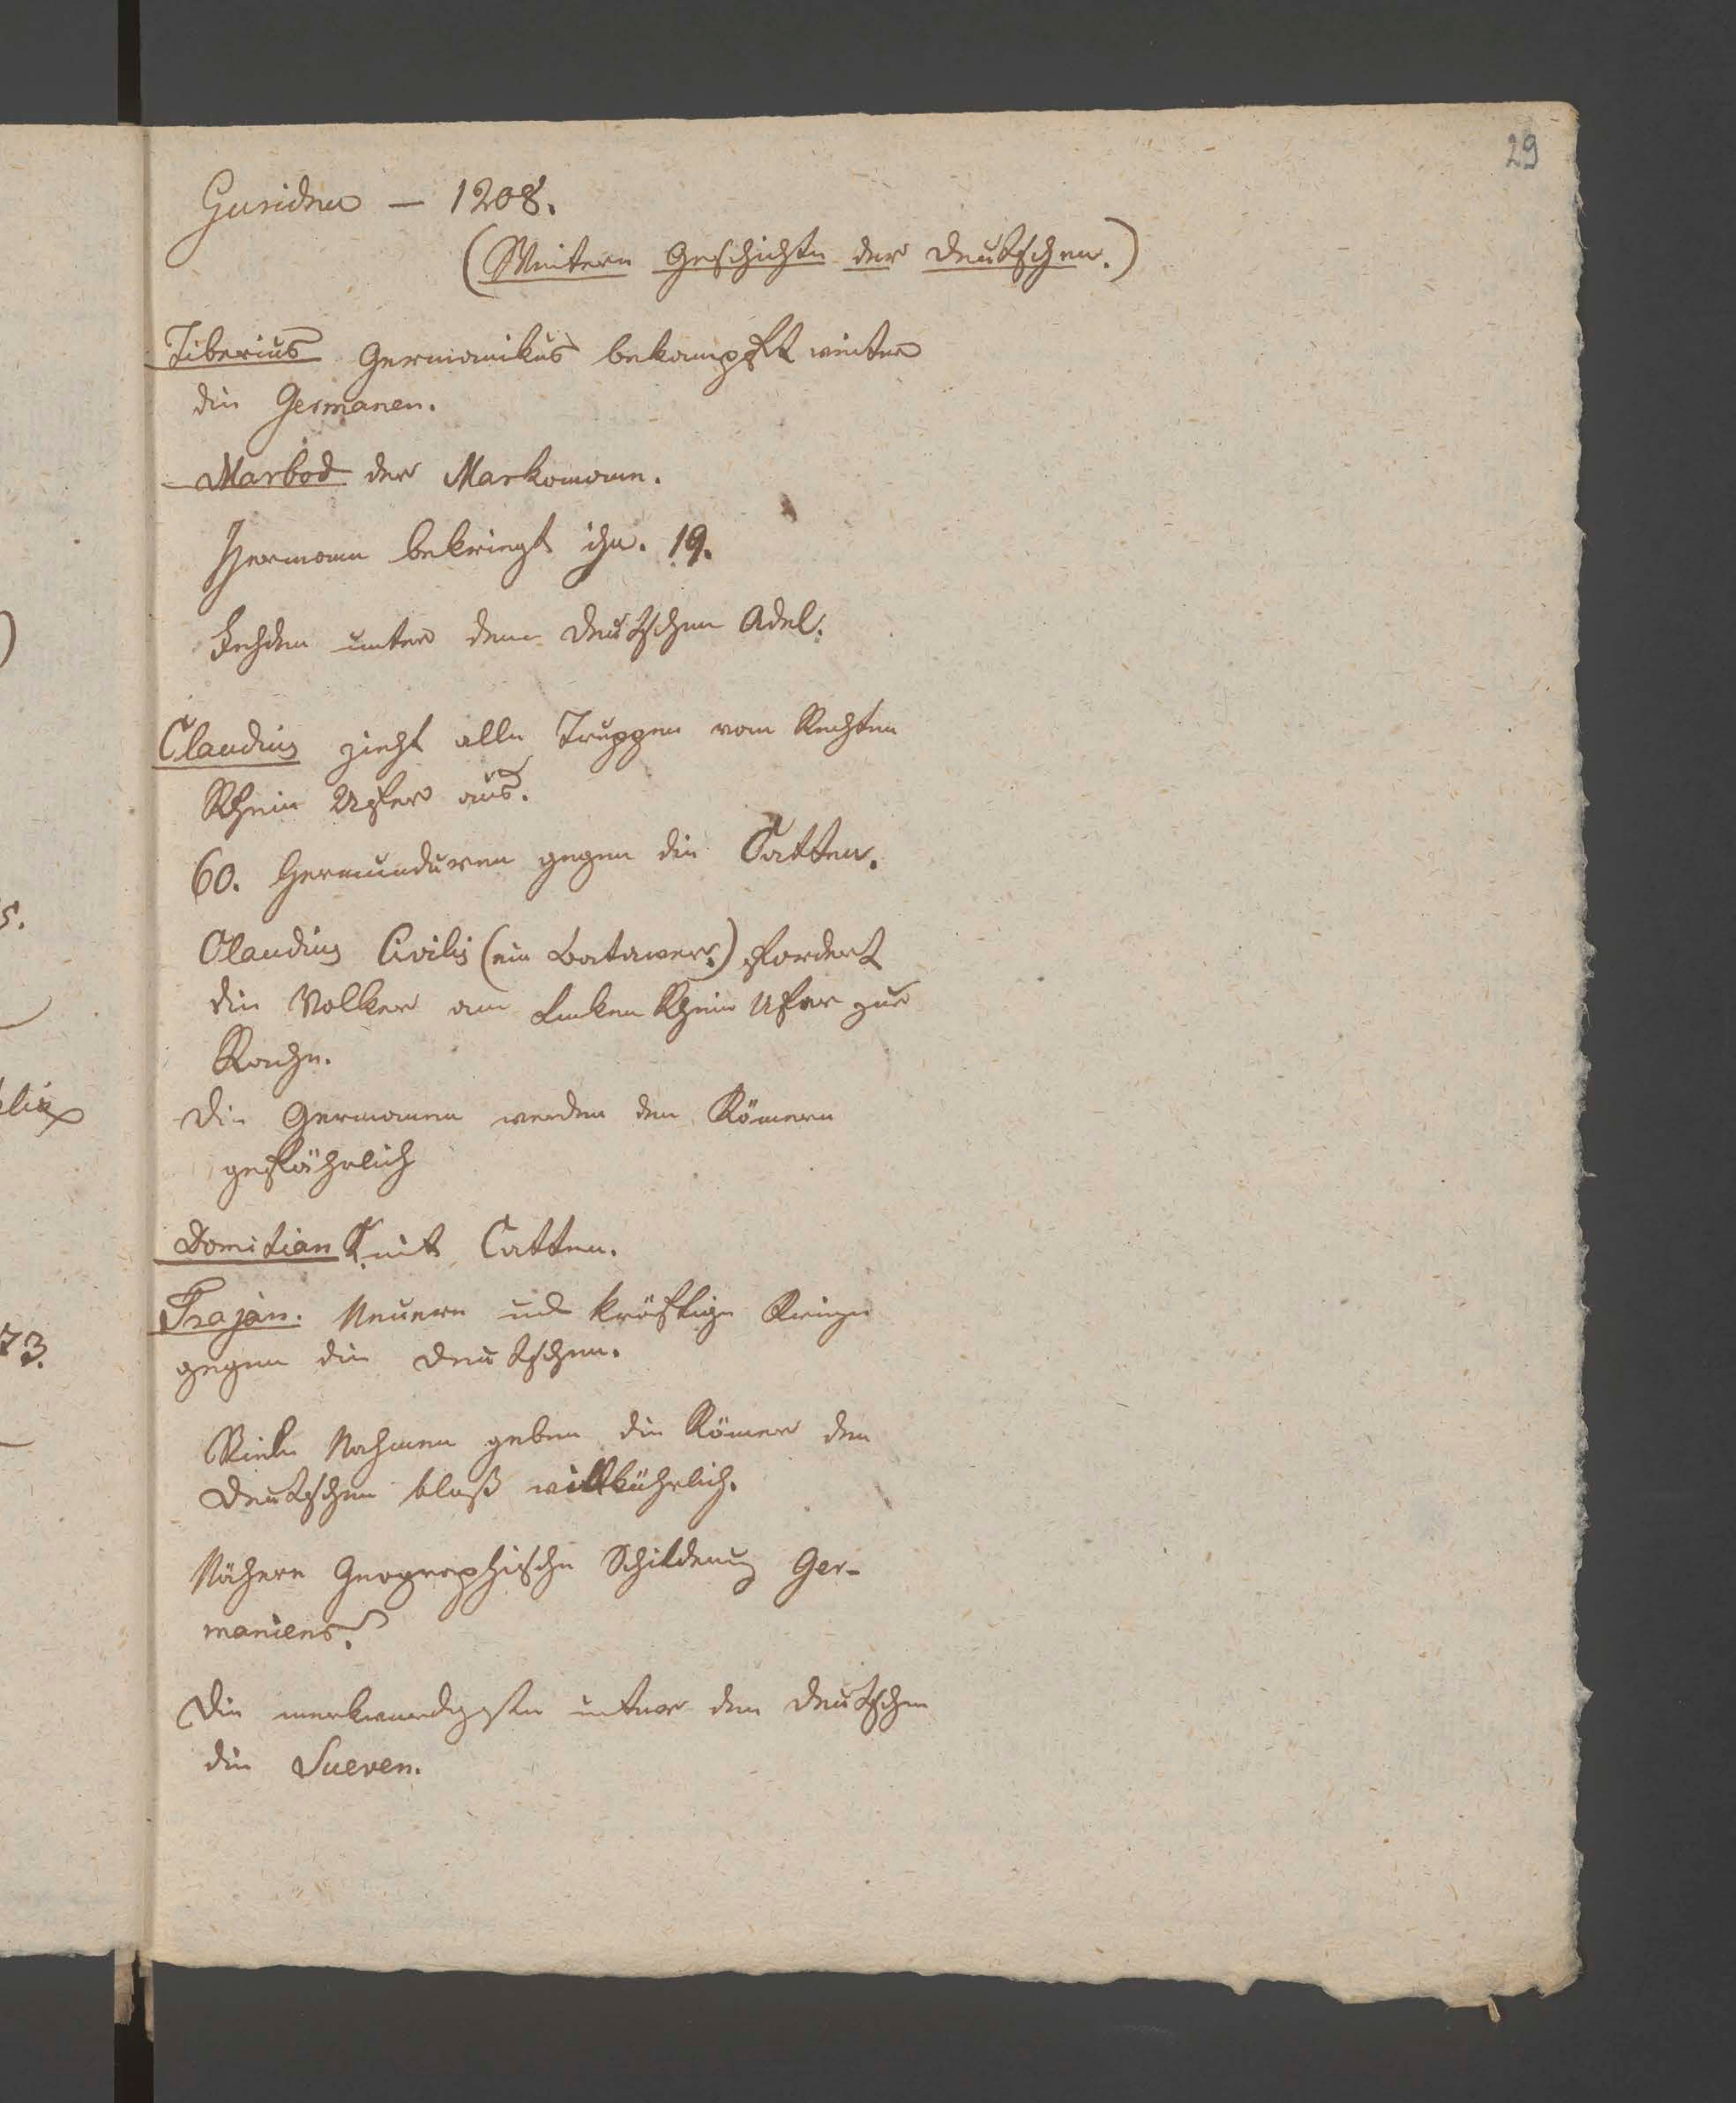 29
Guriden — 1208.
(Weitere Geschichte der Deutschen.)
Tiberius Germanikus bekampft weiter
die Germanen.
Marbod der Markomann.
Hermann bekriegt ihn. 19.
Fehden unter dem Deutschen Adel.
Claudius zieht alle Truppen vom Rechten
Rhein Ufer aus.
60. Hermunduren gegen die Catten.
Claudius Civilis (ein Batawer.) fordert
die Volker am Linken Rhein Ufer zur
Rache.
Die Germanen werden den Römern
gefährlich
Domitian mit Catten.
Trajan. Neuere und kräftige Kriege
gegen die Deutschen.
Viele Nahmen geben die Römer den
Deutschen bloß willkührlich.
Nähere Geographische Schilderung Ger-
maniens.
Die merkwurdigsten unter den Deutschen
die Sueven.
s.
73.